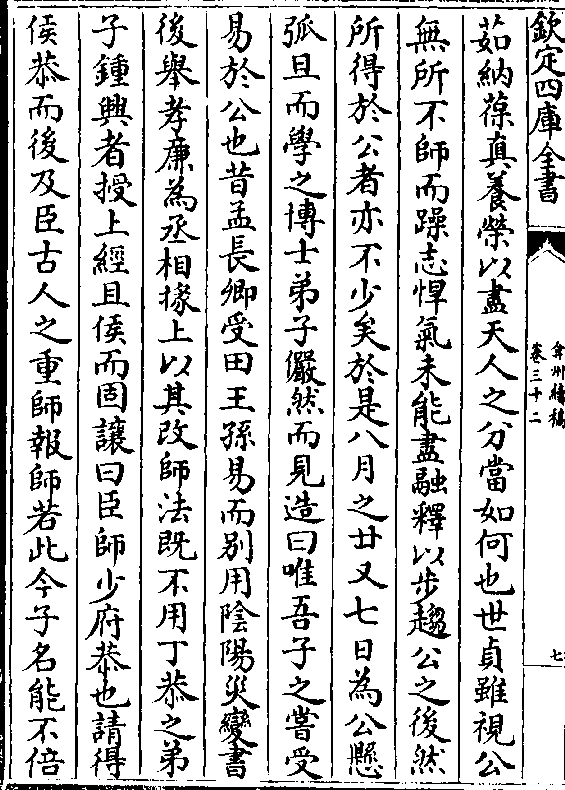 欽定四庫全書
弇州續稿
卷三十二
七
茹納葆真養榮以盡天人之分當如何也世貞雖視公
無所不師而躁志悍氣未能盡融釋以步趨公之後然
所得於公者亦不少矣於是八月之廿又七日為公懸
弧旦而學之博士弟子儼然而見造曰唯吾子之嘗受
易於公也昔孟長卿受田王孫易而别用陰陽災變書
後舉孝廉為丞相掾上以其改師法既不用丁恭之弟
子鍾興者授上經且侯而固讓曰臣師少府恭也請得
侯恭而後及臣古人之重師報師若此今子名能不倍